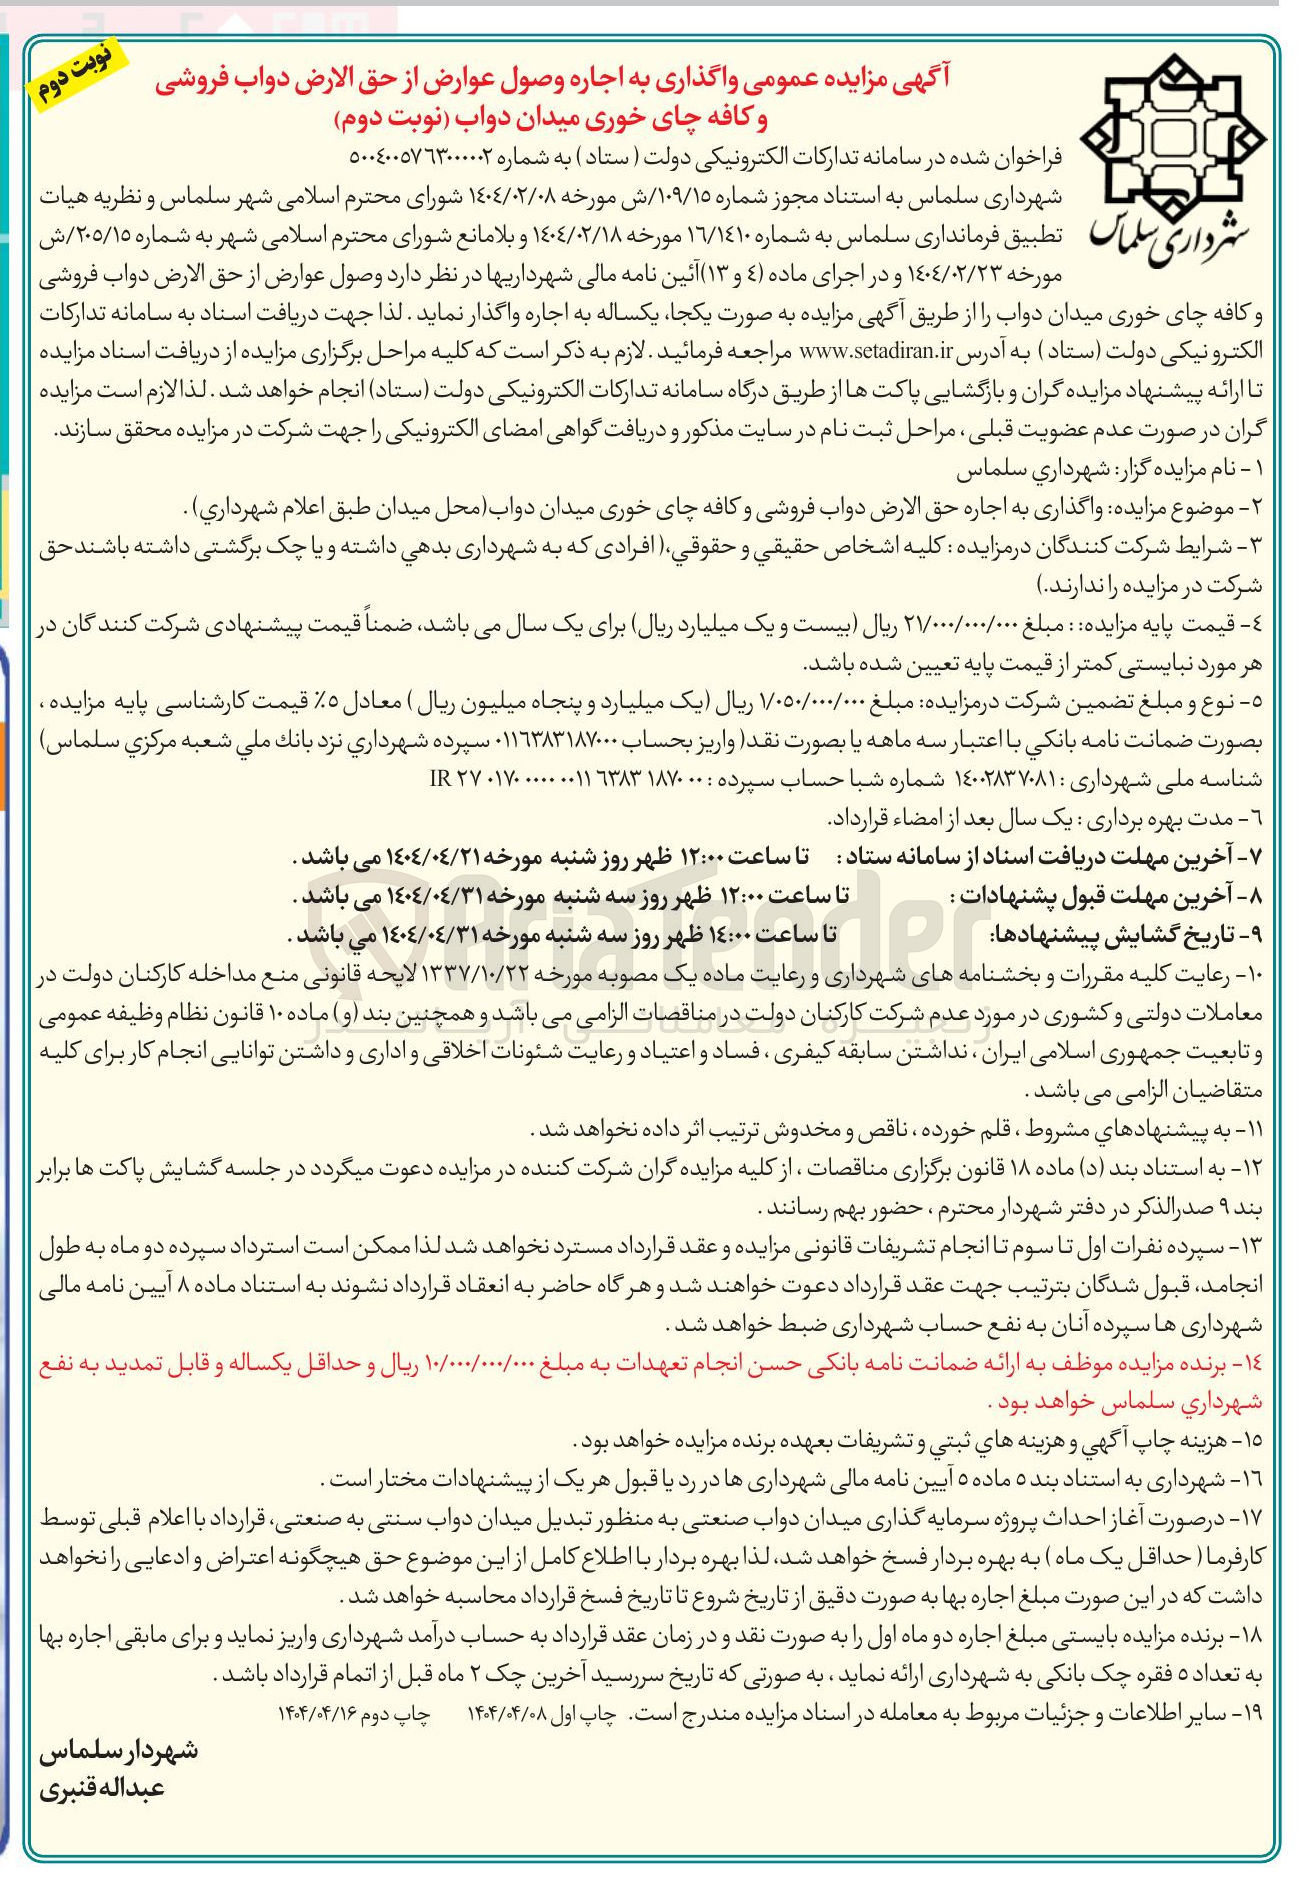 نوبت دوم
آگهی مزایده عمومی واگذاری به اجاره وصول عوارض از حق الارض دواب فروشی
و کافه چای خوری میدان دواب (نوبت دوم)
شهرداری سلماس
فراخوان شده در سامانه تدارکات الکترونیکی دولت ( ستاد ) به شماره ۵۰۰۴۰۰۵۷۶۳۰۰۰۰۰۲
شهرداری سلماس به استناد مجوز شماره ۱۰۹/۱۵/ش مورخه ۱۴۰۴/۰۲/۰۸ شورای محترم اسلامی شهر سلماس و نظریه هیات
تطبیق فرمانداری سلماس به شماره ۱۶/۱۴۱۰ مورخه ۱۴۰۴/۰۲/۱۸ و بلامانع شورای محترم اسلامی شهر به شماره ۲۰۵/۱۵/ش
مورخه ۱۴۰۴/۰۲/۲۳ و در اجرای ماده (۴ و ۱۳)آئین نامه مالی شهرداریها در نظر دارد وصول عوارض از حق الارض دواب فروشی
و کافه چای خوری میدان دواب را از طریق آگهی مزایده به صورت یکجا، یکساله به اجاره واگذار نماید . لذا جهت دریافت اسناد به سامانه تدارکات
الکترو نیکی دولت (ستاد ) به آدرس www.setadiran.ir مراجعه فرمائید . لازم به ذکر است که کلیه مراحل برگزاری مزایده از دریافت اسناد مزایده
تا ارائه پیشنهاد مزایده گران و بازگشایی پاکت ها از طریق درگاه سامانه تدارکات الکترونیکی دولت (ستاد) انجام خواهد شد . لذا لازم است مزایده
گران در صورت عدم عضویت قبلی ، مراحل ثبت نام در سایت مذکور و دریافت گواهی امضای الکترونیکی را جهت شرکت در مزایده محقق سازند.
۱ - نام مزایده گزار: شهرداري سلماس
۲- موضوع مزایده: واگذاری به اجاره حق الارض دواب فروشی و کافه چای خوری میدان دواب(محل میدان طبق اعلام شهرداري) .
۳- شرایط شرکت کنندگان درمزایده : کلیه اشخاص حقیقي و حقوقي،( افرادی که به شهرداری بدهي داشته و یا چک برگشتی داشته باشندحق
شرکت در مزایده را ندارند.)
۴- قیمت پایه مزایده: : مبلغ ۲۱/۰۰۰/۰۰۰/۰۰۰ ریال (بیست و یک میلیارد ریال) برای یک سال می باشد، ضمناً قیمت پیشنهادی شرکت کنند گان در
هر مورد نبایستی کمتر از قیمت پایه تعیین شده باشد.
۵- نوع و مبلغ تضمین شرکت درمزایده: مبلغ ۱/۰۵۰/۰۰۰/۰۰۰ ریال (یک میلیارد و پنجاه میلیون ریال ) معادل ۵٪ قیمت کارشناسی پایه مزایده ،
بصورت ضمانت نامه بانکي با اعتبار سه ماهه یا بصورت نقد( واریز بحساب ۰۱۱۶۳۸۳۱۸۷۰۰۰ سپرده شهرداري نزد بانك ملي شعبه مرکزي سلماس)
شناسه ملی شهرداری : ۱۴۰۰۲۸۳۷۰۸۱ شماره شبا حساب سپرده : IR ۲۷ ۰۱۷۰ ۰۰۰۰ ۰۰۱۱ ۶۳۸۳ ۱۸۷۰ ۰۰
۶- مدت بهره برداری : یک سال بعد از امضاء قرارداد.
۷- آخرین مهلت دریافت اسناد از سامانه ستاد : تا ساعت ۱۲:۰۰ ظهر روز شنبه مورخه ۱۴۰۴/۰۴/۲۱ می باشد .
۸- آخرین مهلت قبول پشنهادات : تا ساعت ۱۲:۰۰ ظهر روز سه شنبه مورخه ۱۴۰۴/۰۴/۳۱ می باشد .
۹- تاریخ گشایش پیشنهادها: تا ساعت ۱۴:۰۰ ظهر روز سه شنبه مورخه ۱۴۰۴/۰۴/۳۱ مي باشد .
۱۰- رعایت کلیه مقررات و بخشنامه های شهرداری و رعایت ماده یک مصوبه مورخه ۱۳۳۷/۱۰/۲۲ لایحه قانونی منع مداخله کارکنان دولت در
معاملات دولتی و کشوری در مورد عدم شرکت کارکنان دولت در مناقصات الزامی می باشد و همچنین بند (و) ماده ۱۰ قانون نظام وظیفه عمومی
و تابعیت جمهوری اسلامی ایران ، نداشتن سابقه کیفری ، فساد و اعتیاد و رعایت شئونات اخلاقی و اداری و داشتن توانایی انجام کار برای کلیه
متقاضیان الزامی می باشد .
۱۱- به پیشنهادهاي مشروط ، قلم خورده ، ناقص و مخدوش ترتیب اثر داده نخواهد شد .
۱۲- به استناد بند (د) ماده ۱۸ قانون برگزاری مناقصات ، از کلیه مزایده گران شرکت کننده در مزایده دعوت میگردد در جلسه گشایش پاکت ها برابر
بند ۹ صدرالذکر در دفتر شهردار محترم ، حضور بهم رسانند .
۱۳- سپرده نفرات اول تا سوم تا انجام تشریفات قانونی مزایده و عقد قرارداد مسترد نخواهد شد لذا ممکن است استرداد سپرده دو ماه به طول
انجامد، قبول شدگان بترتیب جهت عقد قرارداد دعوت خواهند شد و هر گاه حاضر به انعقاد قرارداد نشوند به استناد ماده ۸ آیین نامه مالی
شهرداری ها سپرده آنان به نفع حساب شهرداری ضبط خواهد شد .
۱۴- برنده مزایده موظف به ارائه ضمانت نامه بانکی حسن انجام تعهدات به مبلغ ۱۰/۰۰۰/۰۰۰/۰۰۰ ریال و حداقل یکساله و قابل تمدید به نفع
شهرداري سلماس خواهد بود .
۱۵- هزینه چاپ آگهي و هزینه هاي ثبتي و تشریفات بعهده برنده مزایده خواهد بود .
۱۶- شهرداری به استناد بند ۵ ماده ۵ آیین نامه مالی شهرداری ها در رد یا قبول هر یک از پیشنهادات مختار است .
۱۷- درصورت آغاز احداث پروژه سرمایه گذاری میدان دواب صنعتی به منظور تبدیل میدان دواب سنتی به صنعتی، قرارداد با اعلام قبلی توسط
کارفرما ( حداقل یک ماه ) به بهره بردار فسخ خواهد شد، لذا بهره بردار با اطلاع کامل از این موضوع حق هیچگونه اعتراض و ادعایی را نخواهد
داشت که در این صورت مبلغ اجاره بها به صورت دقیق از تاریخ شروع تا تاریخ فسخ قرارداد محاسبه خواهد شد .
۱۸- برنده مزایده بایستی مبلغ اجاره دو ماه اول را به صورت نقد و در زمان عقد قرارداد به حساب درآمد شهرداری واریز نماید و برای مابقی اجاره بها
به تعداد ۵ فقره چک بانکی به شهرداری ارائه نماید ، به صورتی که تاریخ سررسید آخرین چک ۲ ماه قبل از اتمام قرارداد باشد .
۱۹- سایر اطلاعات و جزئیات مربوط به معامله در اسناد مزایده مندرج است. چاپ اول ۱۴۰۴/۰۴/۰۸ چاپ دوم ۱۴۰۴/۰۴/۱۶
شهردار سلماس
عبداله قنبری
AriaTender